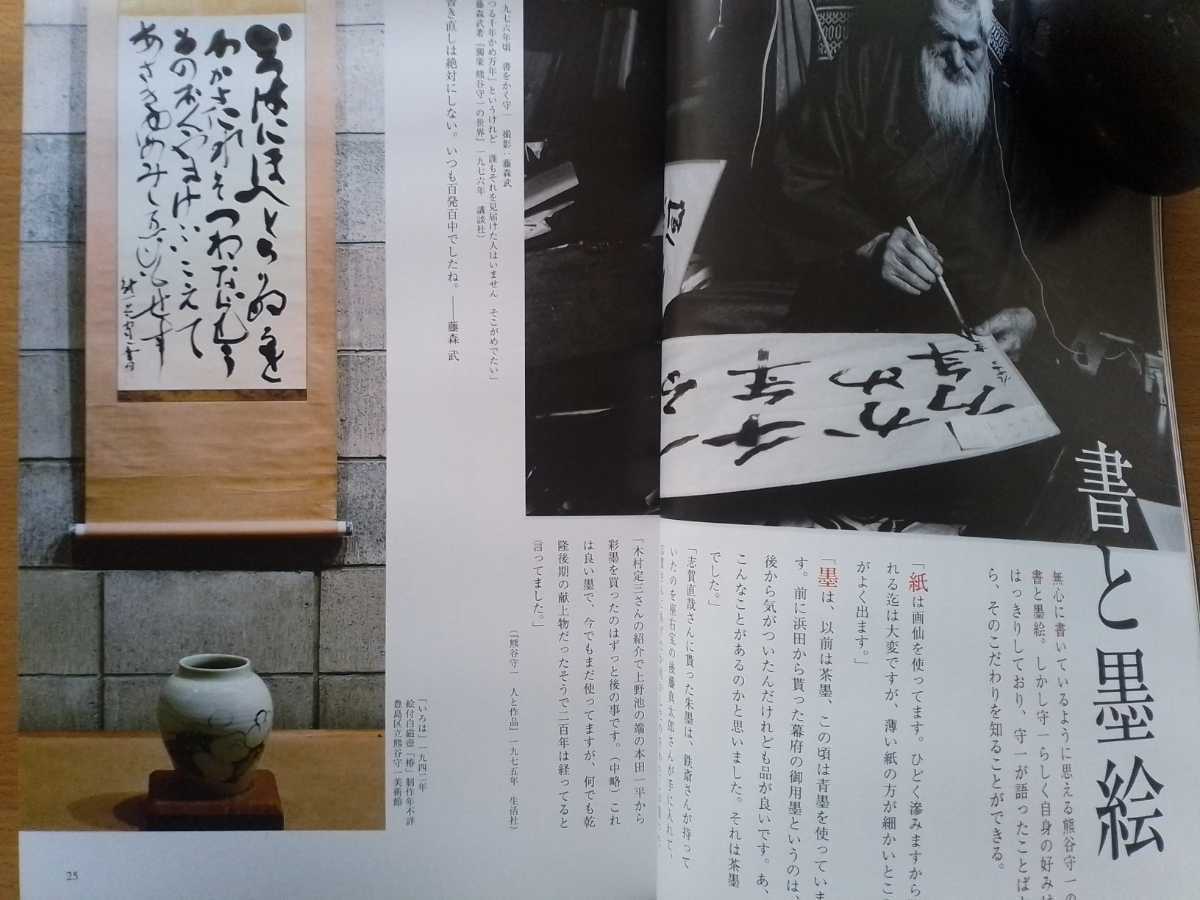 書と墨絵
無心に書いているように思える熊谷守一の
書と墨絵。しかし守一らしく自身の好みは
はっきりしており、守一が語ったことば
ら、そのこだわりを知ることができる。
「紙は画仙を使ってます。ひどく滲みますから
れる迄は大変ですが、薄い紙の方が細かいとこ
がよく出ます。」
「墨は、以前は茶墨、この頃は青墨を使っていま
す。前に浜田から貰った幕府の御用墨というのは、
後から気がついたんだけれども品が良いです。あ、
こんなことがあるのかと思いました。それは茶墨
でした。」
「志賀直哉さんに貰った朱墨は、鉄斎さんが持って
いたのを座右宝の後藤真太郎さんが手に入れて、
「木村定三さんの紹介で上野池の端の本田一平から
彩墨を買ったのはずっと後の事です。(中略)これ
は良い墨で、今でもまだ使ってますが、何でも乾
隆後期の献上物だったそうで二百年は経ってると
言ってました。」
(『熊谷守一 人と作品』一九七五年 生活社)
千年
かめ
万年
九七六年頃 書をかく守一 撮影：藤森武
つる千年かめ万年」というけれど 誰もそれを見届けた人はいません そこがめでたい」
藤森武著『獨楽 熊谷守一の世界』一九七六年 講談社)
書き直しは絶対にしない。いつも百発百中でしたね。――藤森 武
いろはにほへとちりぬるを
わかよたれそつねならむ
うゐのおくやまけふこえて
あさきゆめみしゑひもせす
「いろは」一九四二年
絵付白磁壺「椿」制作年不詳
豊島区立熊谷守一美術館
25